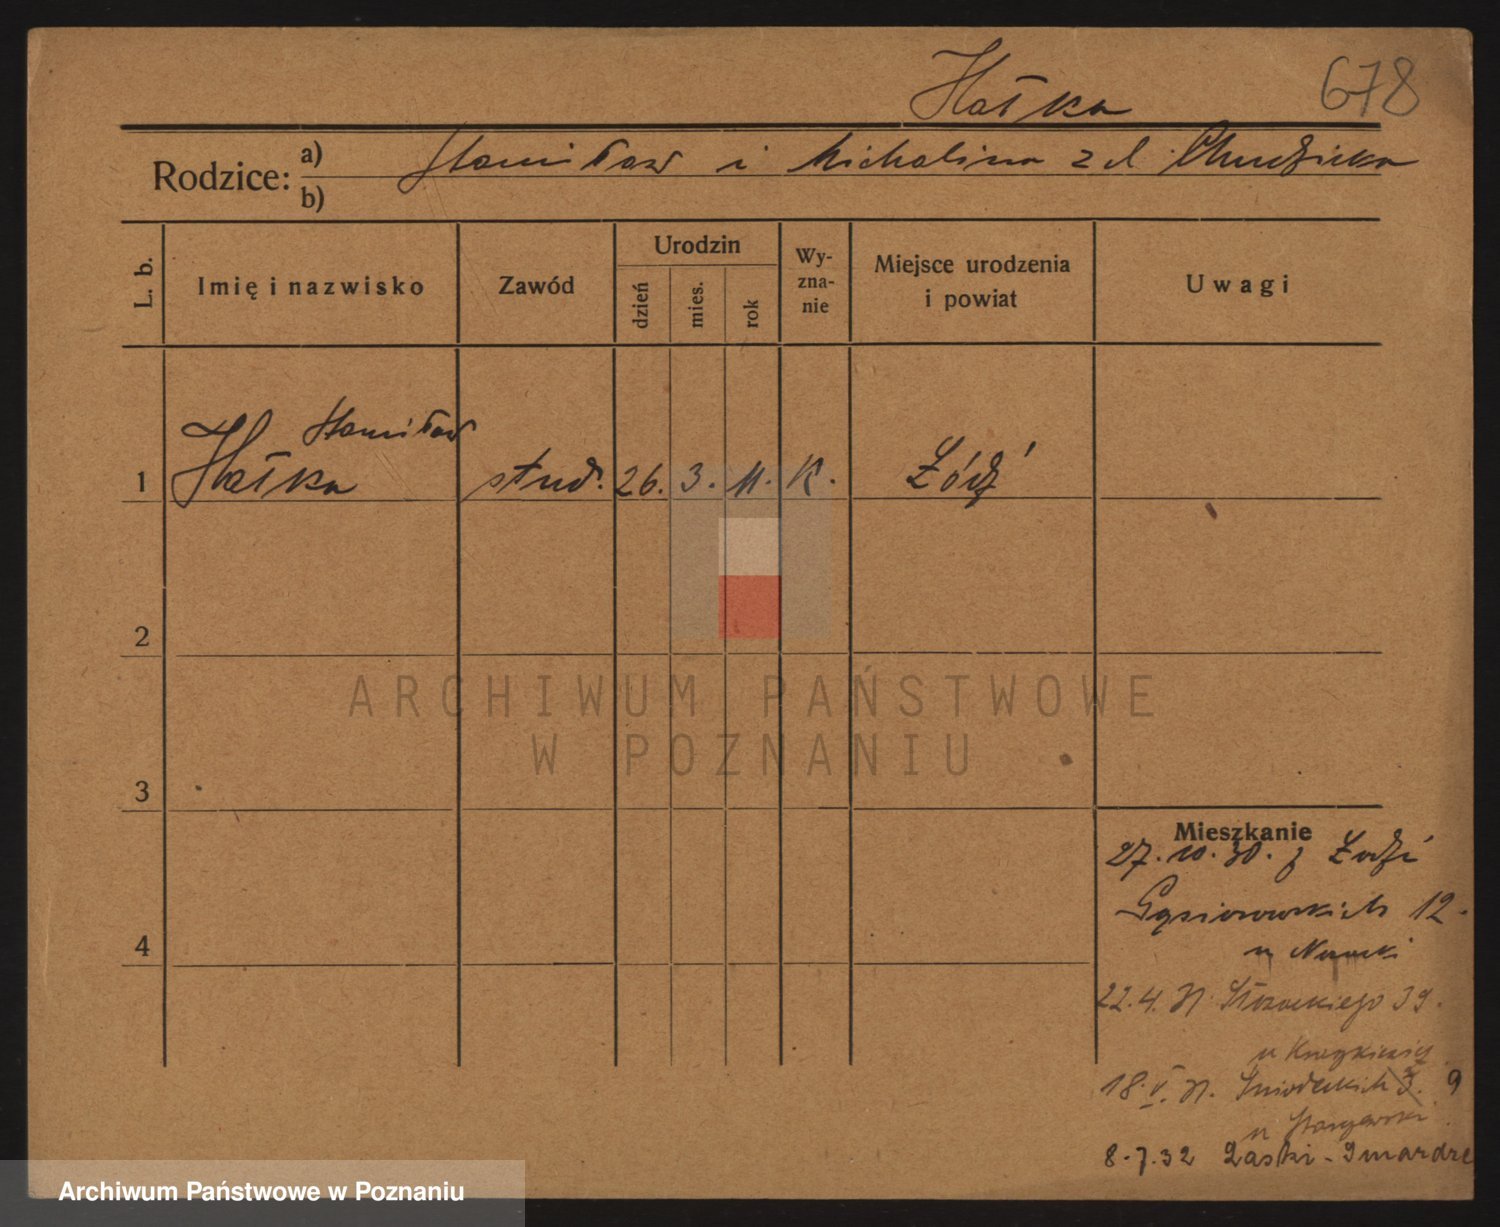 Hałka 678
Rodzice: a) Stanisław i Michalina z d. Chudzicka
b)
L. b. Imię i nazwisko Zawód Urodzin dzień mies. rok Wy-zna-nie Miejsce urodzenia i powiat Uwagi
Stanisław
1 Hałka stud. 26. 3. 11. K. Łódź
2
3
4
Mieszkanie
27.10.30. z Łodzi
Gąsiorowskich 12.
u Nowcki
22.4. 31 Słowackiego 39.
18.V. 31. Śniadeckich 9
u
8.7.32 Laski
ARCHIWUM PAŃSTWOWE
W POZNANIU
Archiwum Państwowe w Poznaniu